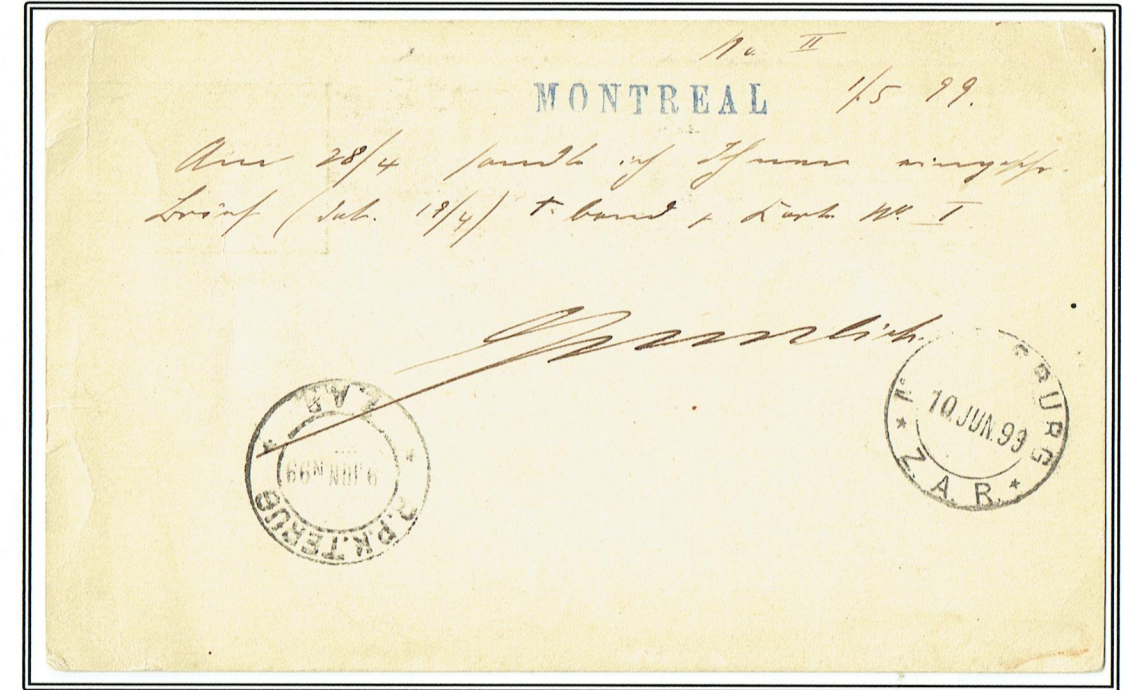 No II
MONTREAL
1/5 99.
Am 28/4 sandte ich Ihnen eingeschr.
Brief (dat. 18/4) band + Karte No I
Z.A.R.
R.P.K.TERUG
9 JUN 99
BURG
10.JUN.99
Z.A.R.